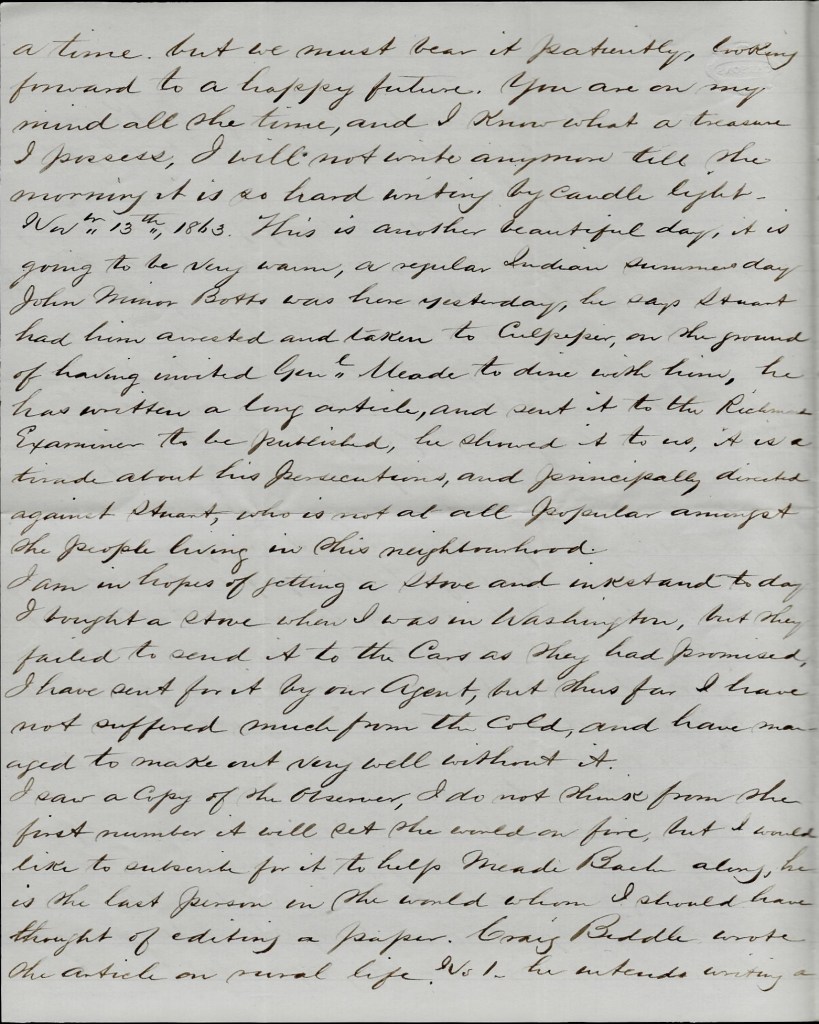 a time. but we must bear it patiently, looking
forward to a happy future. You are on my
mind all the time, and I know what a treasure
I possess, I will not write anymore till the
morning it is so hard writing by candle light-
Novbr„ 13th„, 1863. This is another beautiful day, it is
going to be very warm, a regular Indian summers day
John Minor Botts was here yesterday, he says Stuart
had him arrested and taken to Culpeper, on the ground
of having invited Genl„ Meade to dine with him, he
has written a long article, and sent it to the Richmond
Examiner to be published, he showed it to us, it is a
tirade about his persecutions, and principally directed
against Stuart, who is not at all popular amongst
the people living in this neighbourhood.
I am in hopes of getting a stove and inkstand to day
I bought a stove when I was in Washington, but they
failed to send it to the Cars as they had promised,
I have sent for it by our Agent, but thus far I have
not suffered much from the cold, and have man-
aged to make out very well without it.
I saw a Copy of the Observer, I do not think from the
first number it will set the world on fire, but I would
like to subscribe for it to help Meade Bache along, he
is the last person in the world whom I should have
thought of editing a paper. Craig Biddle wrote
the article on rural life. No 1- he intends writing a